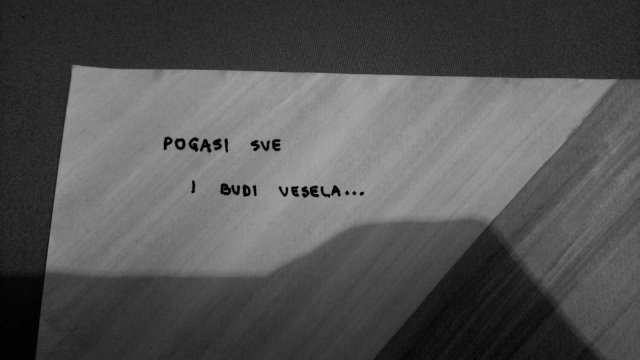 POGASI SVE
I BUDI VESELA...